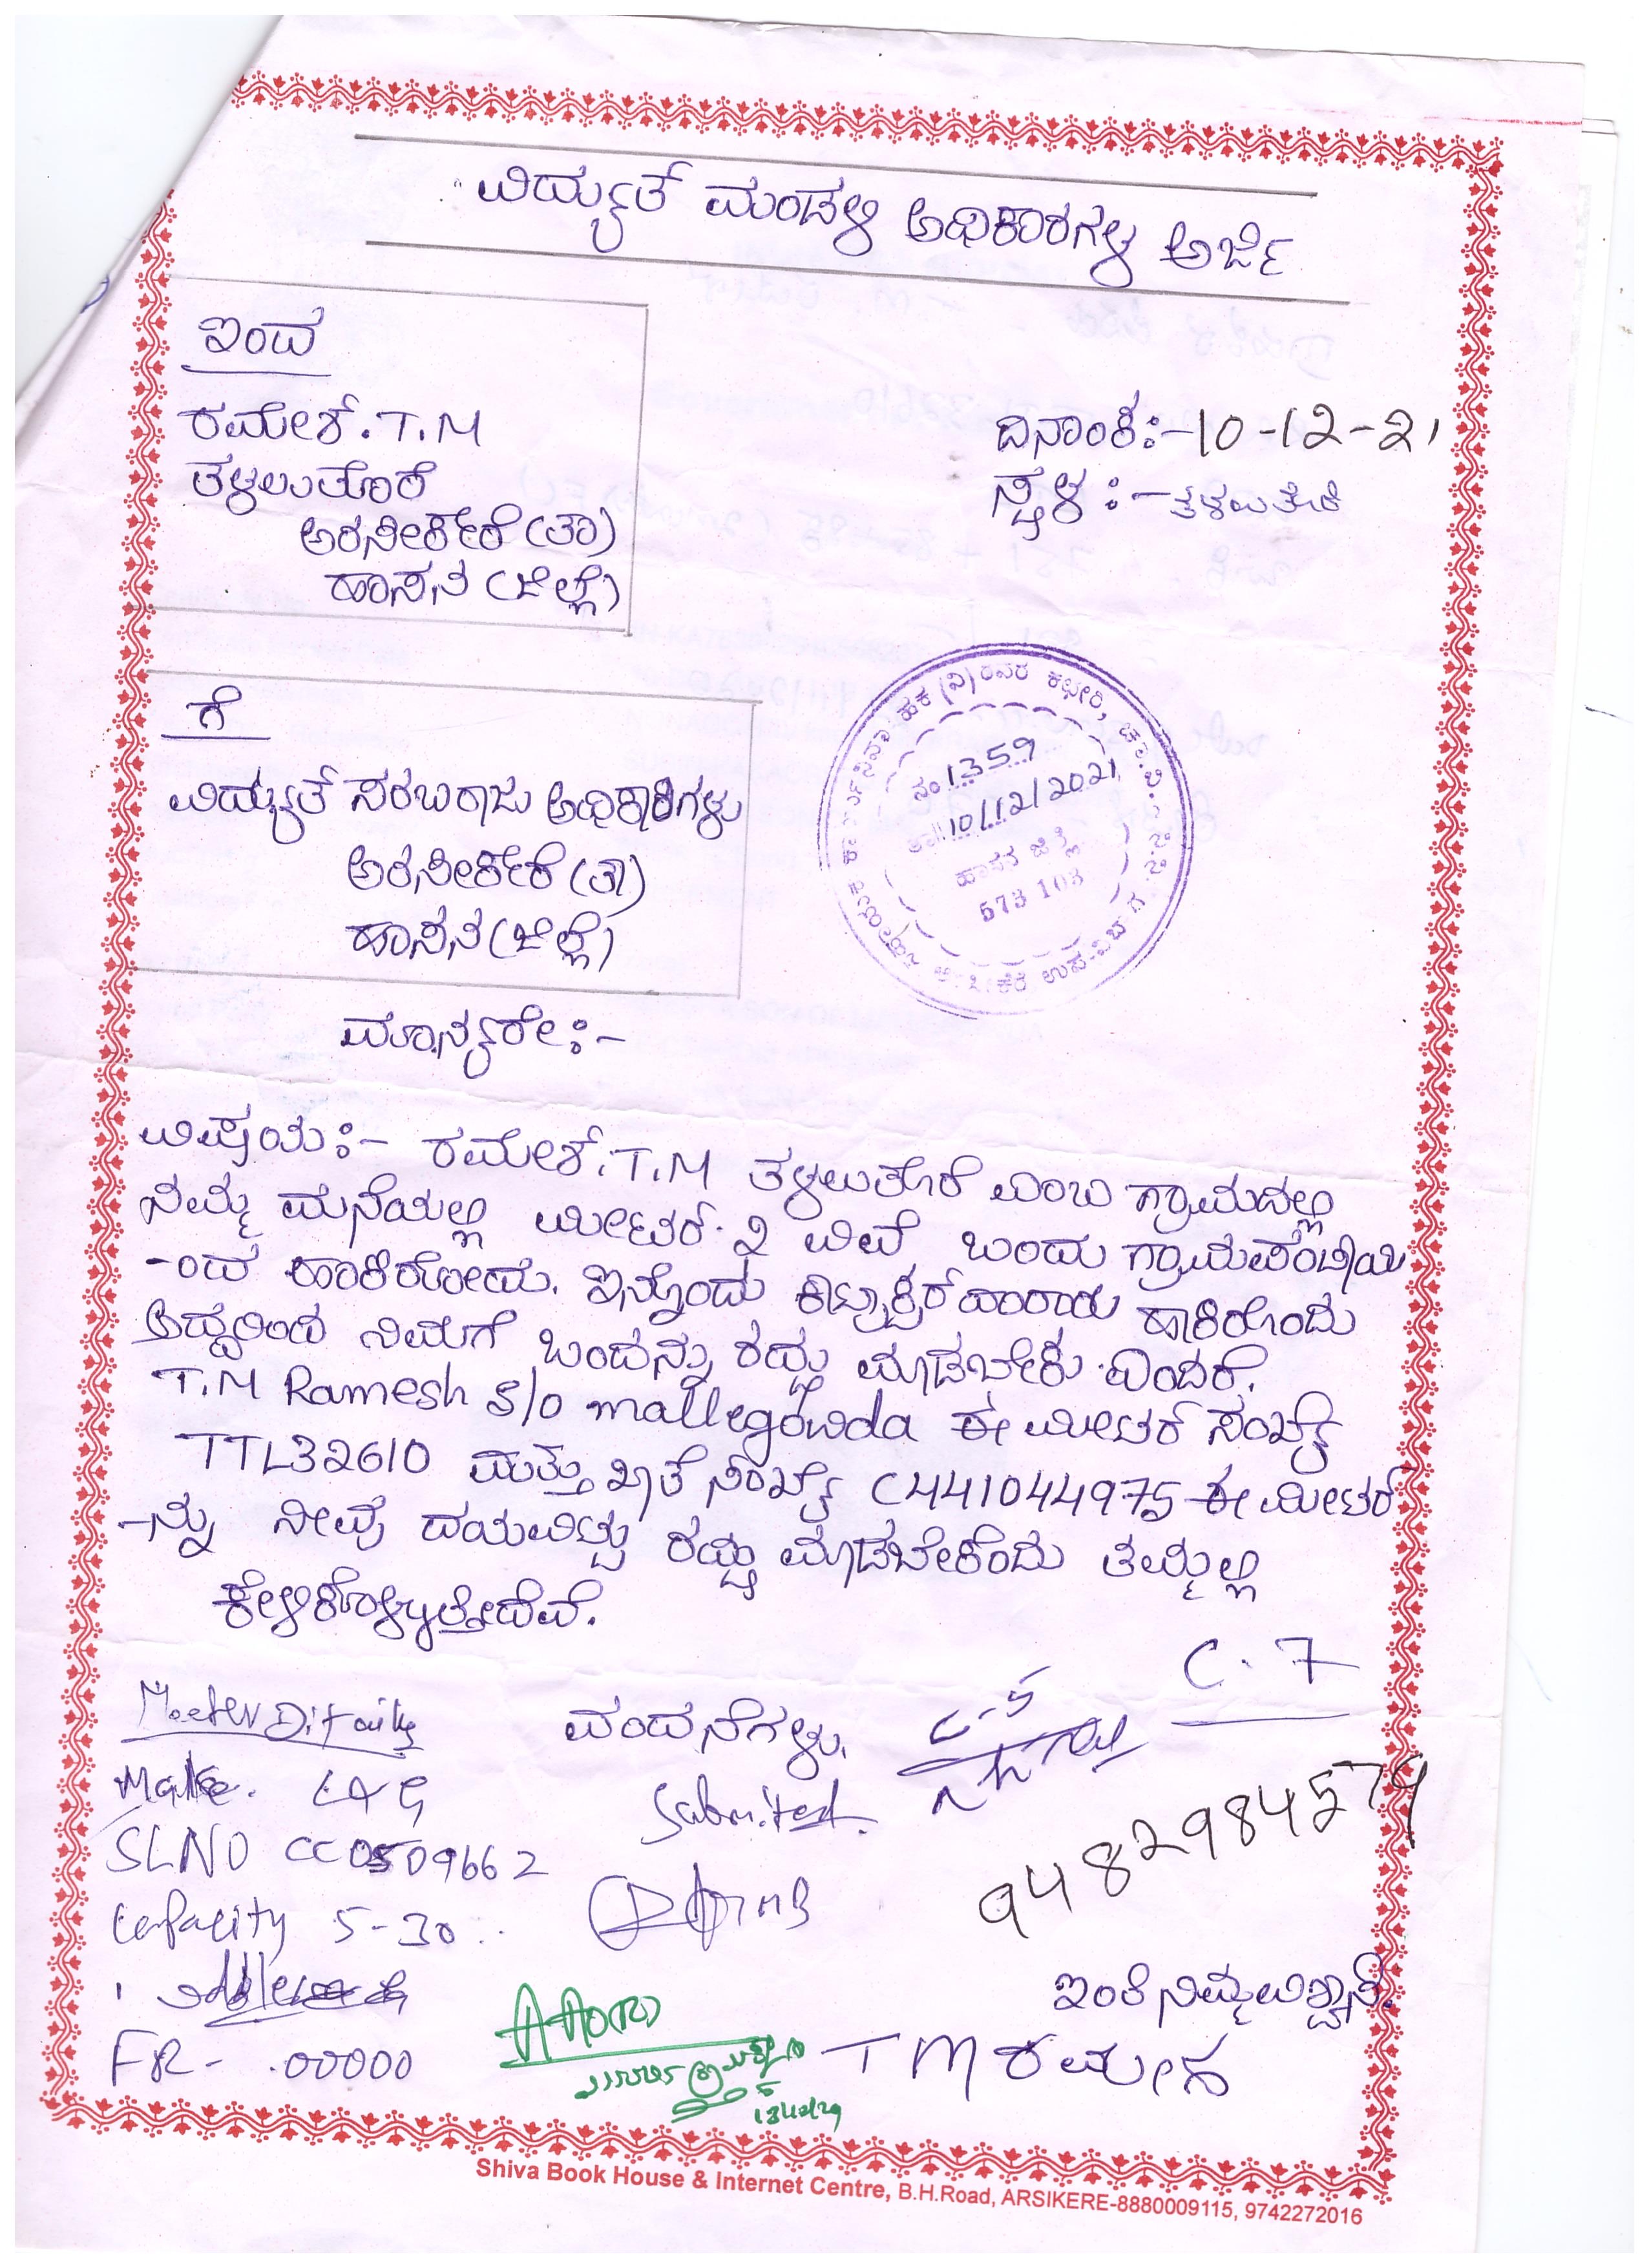 ವಿದ್ಯುತ್ ಮಂಡಳಿ ಅಧಿಕಾರಗಳ ಅರ್ಜಿ
ಇಂದ
ರಮೇಶ್.T.M
ದಿನಾಂಕ:-10-12-21
ತಳಲುತೊರೆ
ಸ್ಥಳ:-ತಳಲುತೊರೆ
ಅರಸೀಕೆರೆ (ತಾ)
ಹಾಸನ (ಜಿಲ್ಲೆ)
ಗೆ
ವಿದ್ಯುತ್ ಸರಬರಾಜು ಅಧಿಕಾರಿಗಳು
ಅರಸೀಕೆರೆ (ತಾ)
ಹಾಸನ (ಜಿಲ್ಲೆ)
ಸಹಾಯಕ ಕಾರ್ಯನಿರ್ವಾಹಕ (ವಿ) ರವರ ಕಛೇರಿ, ಚಾ.ವಿ.ಸ.ನಿ.ನಿ.
ಅರಸೀಕೆರೆ ಉಪ-ವಿಭಾಗ
ನಂ 1359
ತಾ|| 10/12/2021
ಹಾಸನ ಜಿಲ್ಲೆ
573 103
ಮಾನ್ಯರೇ:-
ವಿಷಯ:- ರಮೇಶ್.T.M ತಳಲುತೊರೆ ಎಂಬ ಗ್ರಾಮದಲ್ಲಿ
ನಮ್ಮ ಮನೆಯಲ್ಲಿ ಮೀಟರ್ 2 ಇವೆ ಒಂದು ಗ್ರಾಮಪಂಚಾಯಿ
-ಂದ ಹಾಕಿರೋದು. ಇನ್ನೊಂದು ಹಾಕಿರೊಂದು
ಆದ್ದರಿಂದ ನಿಮಗೆ ಒಂದನ್ನು ರದ್ದು ಮಾಡಬೇಕು ಎಂದರೆ.
T.M Ramesh s/o mallegowda ಈ ಮೀಟರ್ ಸಂಖ್ಯೆ
TTL32610 ಮತ್ತು ಖಾತೆ ಸಂಖ್ಯೆ C441044975 ಈ ಮೀಟರ್
-ನ್ನು ನೀವು ದಯವಿಟ್ಟು ರದ್ದು ಮಾಡಬೇಕೆಂದು ತಮ್ಮಲ್ಲಿ
ಕೇಳಿಕೊಳ್ಳುತ್ತೇದೆವೆ.
C.7
Meeter Ditails
ವಂದನೆಗಳು.
C-5
Make. L&G
Submited.
SLNO CC0509662
9482984579
Capacity 5-30
ಇಂತಿ ನಿಮ್ಮ ವಿಶ್ವಾಸಿ.
FR- .00000
AAO(R)
T M ರಮೇಶ
Shiva Book House & Internet Centre, B.H.Road, ARSIKERE-8880009115, 9742272016